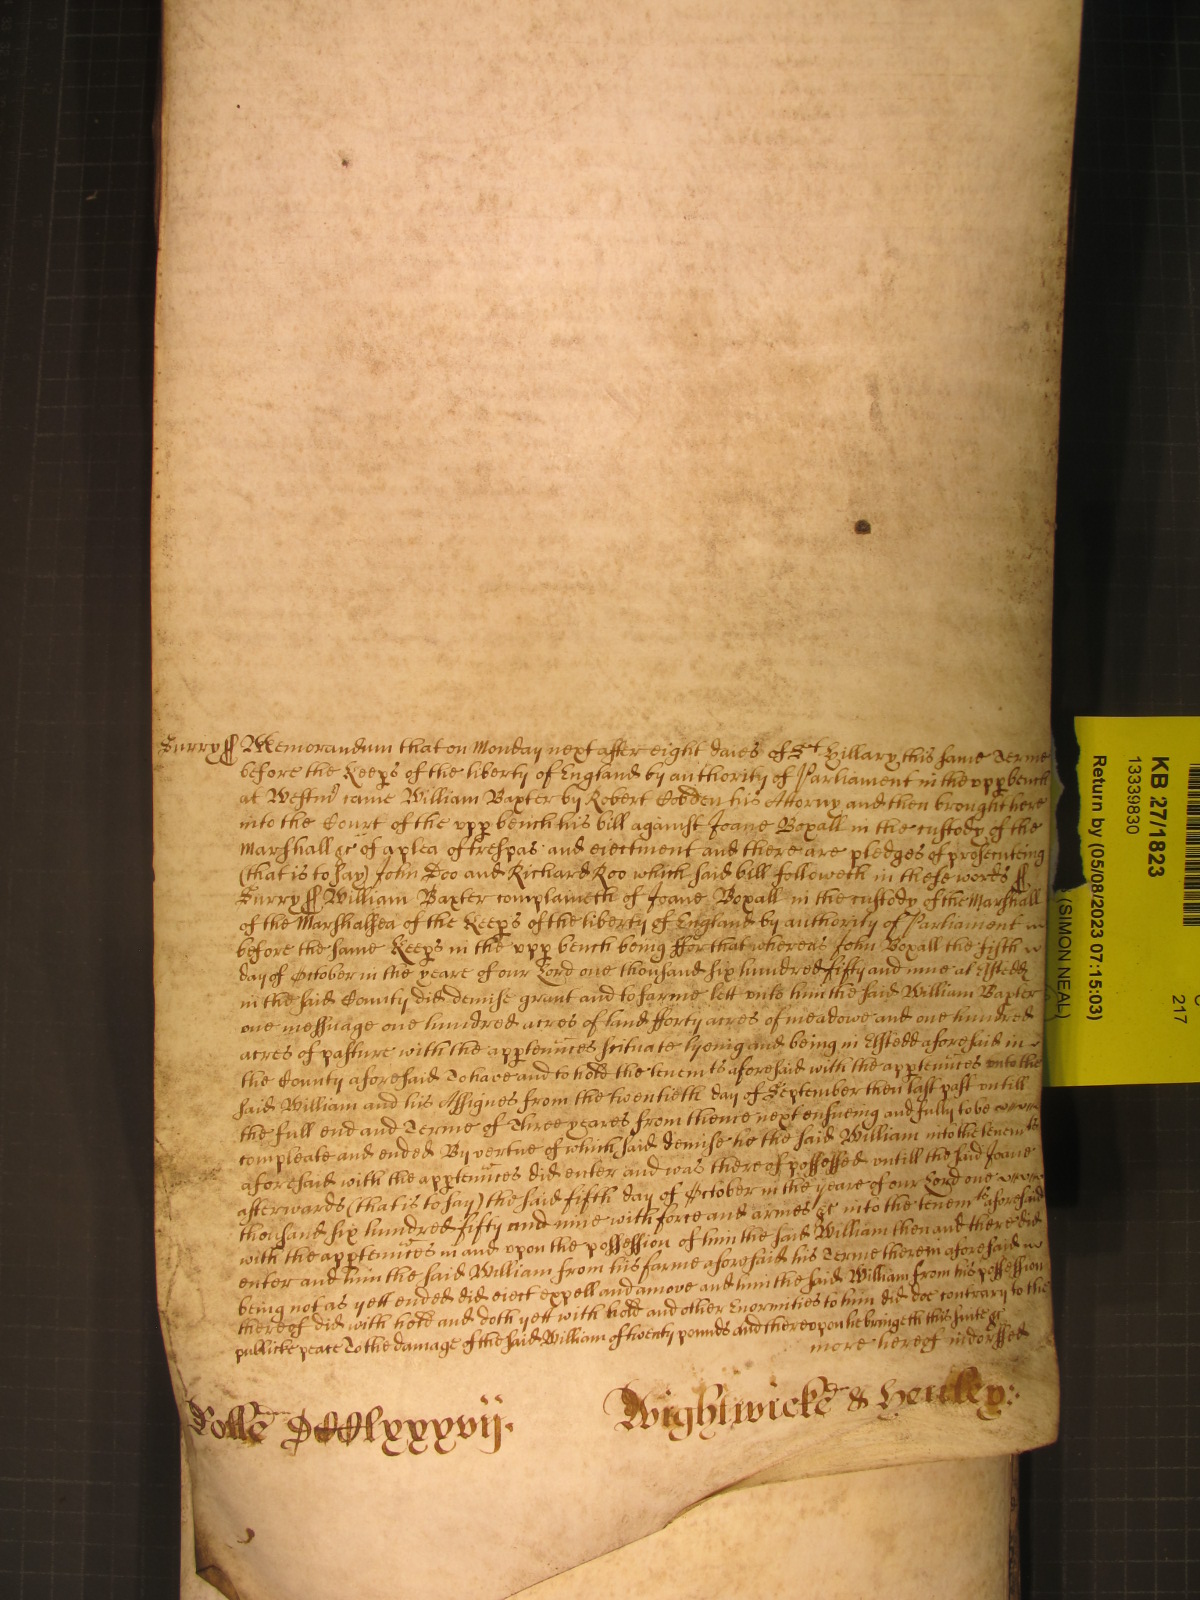 Surry ss Memorandum that on Monday next after eight daies of St Hillary this same Terme
before the Keeps of the liberty of England by authority of Parliament in the upp bench
at Westm came William Baxter by Robert Cobden his Attorny and then brought here
into the Court of the upp bench his bill against Joane Boxall in the custody of the
Marshall &c of a plea of trespas and eiectment and there are pledges of prosecuteing
(that is to say) John Doo and Richard Roo which said bill followeth in these words ss
Surry ss William Baxter complaineth of Joane Boxall in the custody of the Marshall
of the Marshalsea of the Keeps of the liberty of England by authority of Parliament
before the same Keeps in the upp bench being ffor that whereas John Boxall the fifth
day of October in the yeare of our Lord one thousand six hundred fifty and nine at Elstedd
in the said County did demise grant and to farme lett unto him the said William Baxter
one messuage one hundred acres of land fforty acres of meadowe and one hundred
acres of pasture with the apptennces scituate lyeing and being in Elstedd aforesaid in
the County aforesaid To have and to hold the tenemts aforesaid with the apptennces unto the
said William and his Assignes from the twentieth day of September then last past untill
the full end and Terme of Three yeares from thence next ensueing and fully to be
compleate and ended By vertue of which said demise he the said William into the tenemts
aforesaid with the apptennces did enter and was thereof possessed untill the said Joane
afterwards (that is to say) the said fifth day of October in the yeare of our Lord one
thousand six hundred fifty and nine with force and armes &c into the tenemts aforesaid
with the apptennces in and upon the possession of him the said William then and there did
enter and him the said William from his farme aforesaid his Terme therein aforesaid
being not as yett ended did eiect expell and amove and him the said William from his possession
thereof did with hold and doth yett with hold and other Enormities to him did doe contrary to the
publicke peace To the damage of the said William of twenty pounds and thereupon he bringeth this suite &c
more hereof indorssed
Rolle DCClxxxvij.
Wightwicke & Henley:
KB 27/1823
13339830
Return by (05/08/2023 07:15:03)
(SIMON NEAL)
217